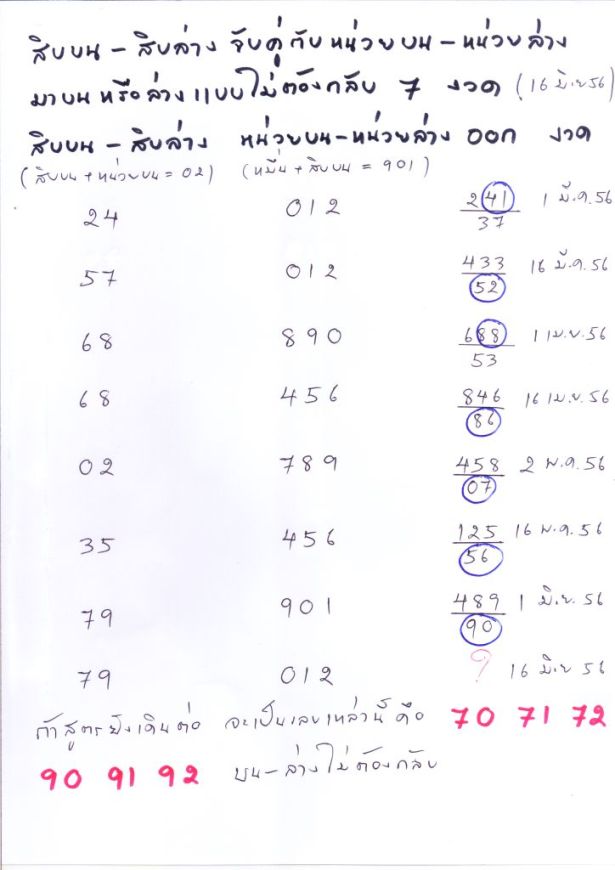 สิบบน - สิบล่าง จับคู่กับหน่วยบน - หน่วยล่าง
มาบนหรือล่างแบบไม่ต้องกลับ 7 งวด (16 มิ.ย 56)
สิบบน - สิบล่าง หน่วยบน - หน่วยล่าง ออก งวด
(สิบบน + หน่วยบน = 02) (หมื่น + สิบบน = 901)
24 012 241 1 มี.ค. 56
37
57 012 433 16 มี.ค. 56
52
68 890 688 1 เม.ย. 56
53
68 456 846 16 เม.ย. 56
86
02 789 458 2 พ.ค. 56
07
35 456 125 16 พ.ค. 56
56
79 901 489 1 มิ.ย. 56
90
79 012 ? 16 มิ.ย 56
ถ้าสูตรยังเดินต่อ จะเป็นเลขเหล่านี้คือ 70 71 72
90 91 92 บน - ล่างไม่ต้องกลับ